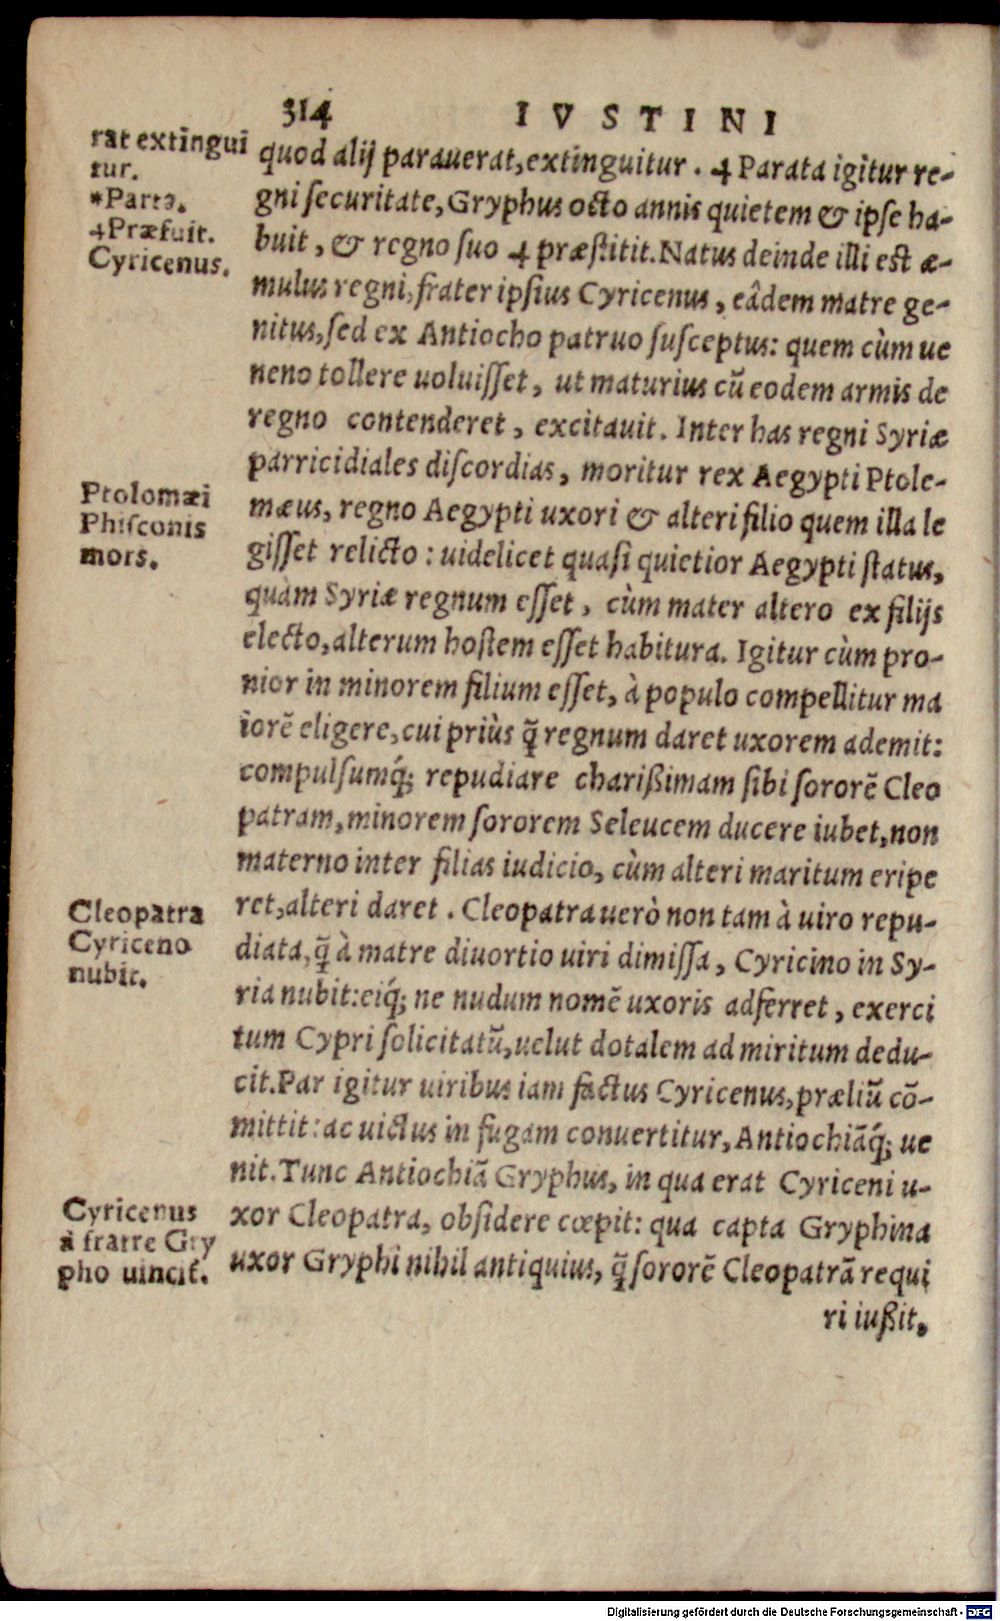 314 IVSTINI
rat extingui
tur.
*Parta.
4Præfuit.
Cyricenus.
quod alij parauerat, extinguitur. 4 Parata igitur re-
gni securitate, Gryphus octo annis quietem & ipse ha-
buit, & regno suo 4 præstitit. Natus deinde illi est æ-
mulus regni, frater ipsius Cyricenus, eâdem matre ge-
nitus, sed ex Antiocho patruo susceptus: quem cùm ue
neno tollere uoluisset, ut maturius cũ eodem armis de
regno contenderet, excitauit. Inter has regni Syriæ
parricidiales discordias, moritur rex Aegypti Ptole-
Ptolomæi
Phisconis
mors.
mæus, regno Aegypti uxori & alteri filio quem illa le
gisset relicto: uidelicet quasi quietior Aegypti status,
quàm Syriæ regnum esset, cùm mater altero ex filijs
electo, alterum hostem esset habitura. Igitur cùm pro-
nior in minorem filium esset, à populo compellitur ma
iorẽ eligere, cui priùs q̃ regnum daret uxorem ademit:
compulsumq́; repudiare charißimam sibi sororẽ Cleo
patram, minorem sororem Seleucem ducere iubet, non
materno inter filias iudicio, cùm alteri maritum eripe
ret, alteri daret. Cleopatra uerò non tam à uiro repu-
Cleopatra
Cyriceno
nubit.
diata, q̃ à matre diuortio uiri dimissa, Cyricino in Sy-
ria nubit: eiq́; ne nudum nomẽ uxoris adferret, exerci
tum Cypri solicitatũ, uelut dotalem ad miritum dedu-
cit. Par igitur uiribus iam factus Cyricenus, præliũ cõ-
mittit: ac uictus in fugam conuertitur, Antiochiãq́; ue
nit. Tunc Antiochiã Gryphus, in qua erat Cyriceni u-
Cyricenus
à fratre Gry
pho uincit.
xor Cleopatra, obsidere cœpit: qua capta Gryphina
uxor Gryphi nihil antiquius, q̃ sororẽ Cleopatrã requi
ri iußit,
Digitalisierung gefördert durch die Deutsche Forschungsgemeinschaft - DFG